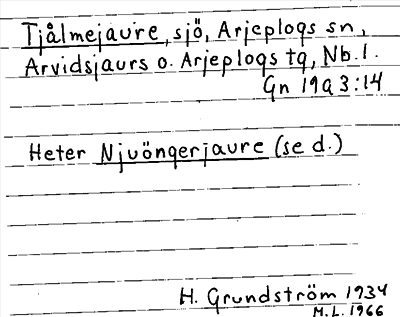 Tjålmejaure, sjö, Arjeplogs sn,
Arvidsjaurs o. Arjeplogs tg, Nb. l.
Gn 19a 3:14
Heter Njuöngerjaure (se d.)
H. Grundström 1934
M.L. 1966